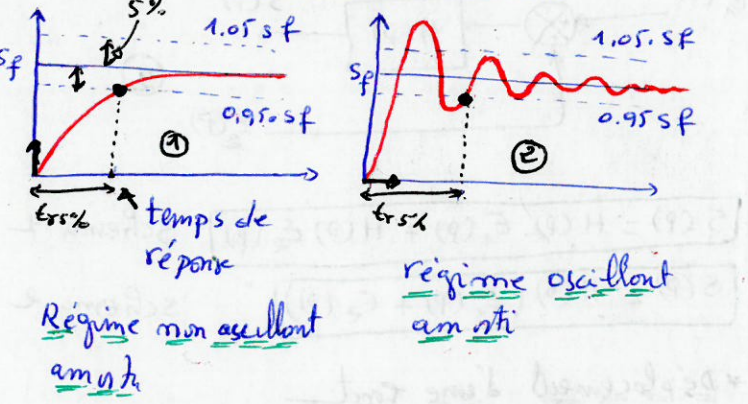 5%
1.05 sf
sf
0,95. sf
①
tr5%
temps de
réponse
Régime non oscillont
amorti
1,05. sf
sf
0.95 sf
②
tr 5%
régime oscillont
amorti